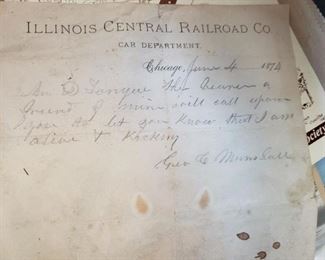 ILLINOIS CENTRAL RAILROAD CO.
CAR DEPARTMENT.
Chicago, June 4 1874
Mr D The Bearer a
friend of mine will call upon
you to let you know that I am
alive & Kicking
Geo C